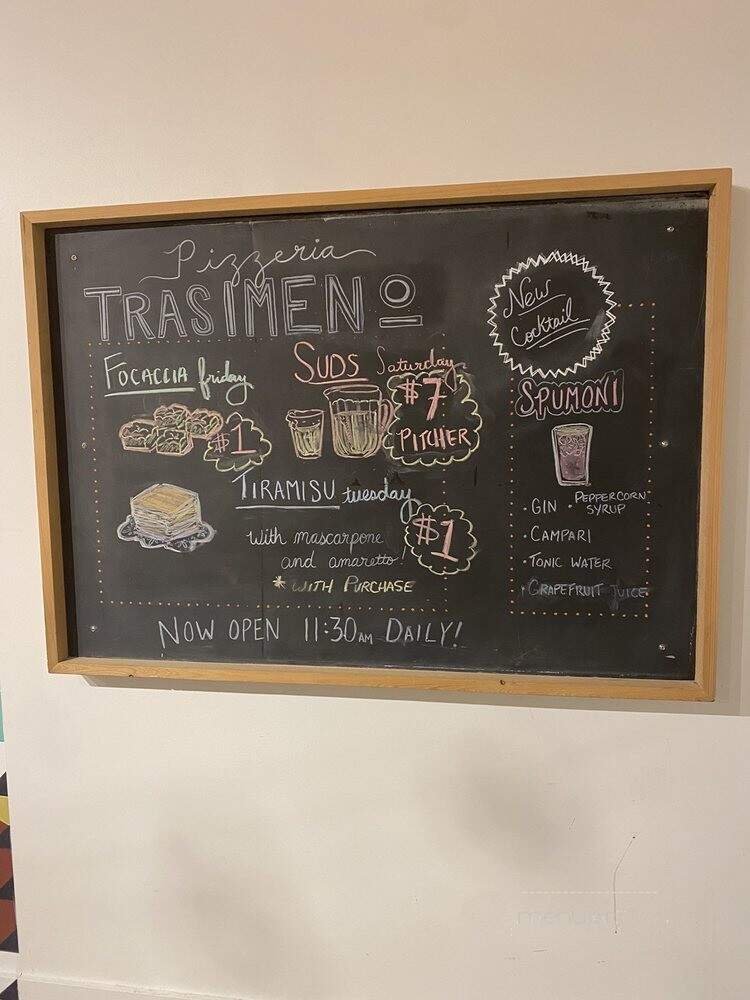 Pizzeria
TRASIMENO
FOCACCIA friday
$1
SUDS Saturday
$7
PITCHER
TIRAMISU tuesday
With mascarpone
and amaretto!
$1
* WITH PURCHASE
NOW OPEN 11:30AM DAILY!
New
Cocktail
SPUMONI
• GIN • PEPPERCORN
SYRUP
• CAMPARI
• TONIC WATER
• GRAPEFRUIT JUICE